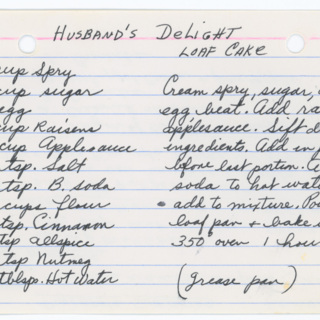 HUSBAND'S DELIGHT
LOAF CAKE
cup Spry
cup sugar
egg
cup Raisens
cup Applesauce
tsp. Salt
tsp. B. soda
cups flour
tsp. Cinnamon
tsp allspice
tsp Nutmeg
tblsp. Hot Water
Cream spry, sugar,
egg beat. Add ra
applesauce. Sift d
ingredients. Add in
before last portion. A
soda to hot wate
add to mixture. Po
loaf pan & bake
350° oven 1 hour
(grease pan)